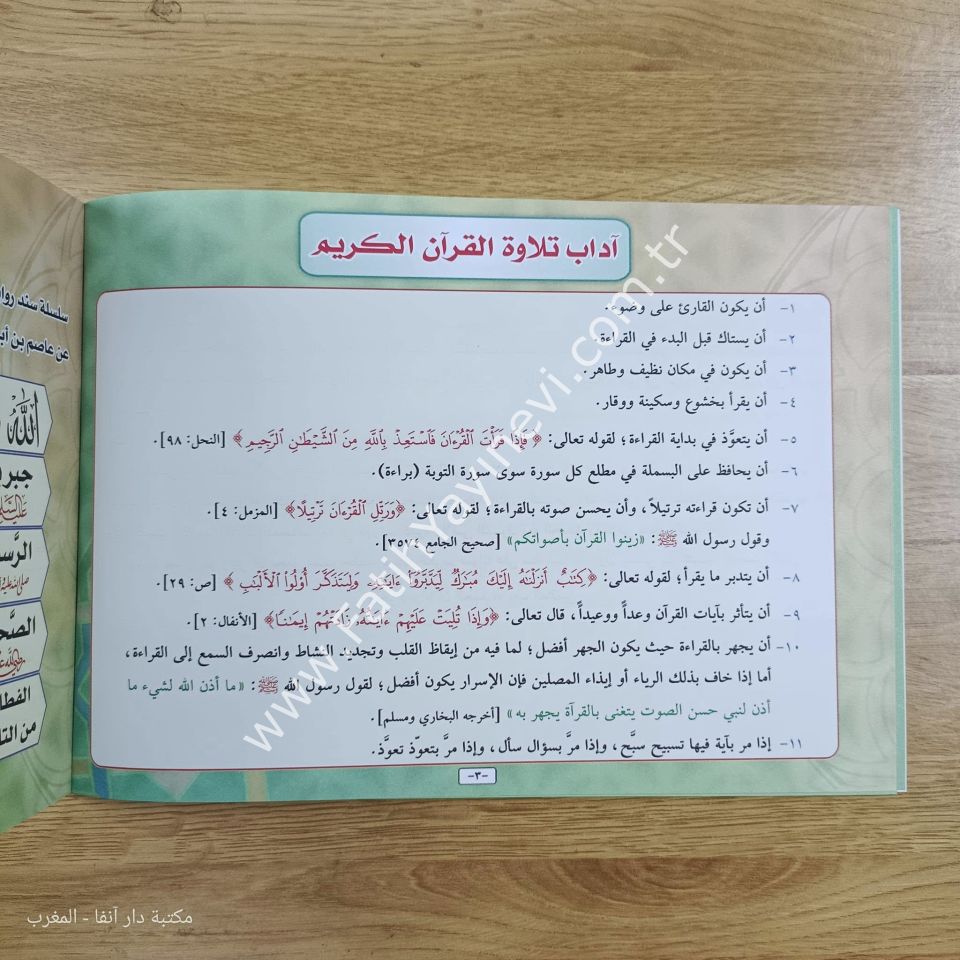 آداب تلاوة القرآن الكريم
١- أن يكون القارئ على وضوء.
٢- أن يستاك قبل البدء في القراءة.
٣- أن يكون في مكان نظيف وطاهر.
٤- أن يقرأ بخشوع وسكينة ووقار.
٥- أن يتعوَّذ في بداية القراءة؛ لقوله تعالى: ﴿فَإِذَا قَرَأْتَ ٱلْقُرْءَانَ فَٱسْتَعِذْ بِٱللَّهِ مِنَ ٱلشَّيْطَٰنِ ٱلرَّجِيمِ﴾ [النحل: ٩٨].
٦- أن يحافظ على البسملة في مطلع كل سورة سوى سورة التوبة (براءة).
٧- أن تكون قراءته ترتيلاً، وأن يحسن صوته بالقراءة؛ لقوله تعالى: ﴿وَرَتِّلِ ٱلْقُرْءَانَ تَرْتِيلًا﴾ [المزمل: ٤].
وقول رسول الله ﷺ: «زينوا القرآن بأصواتكم» [صحيح الجامع ٣٥٧٤].
٨- أن يتدبر ما يقرأ؛ لقوله تعالى: ﴿كِتَٰبٌ أَنزَلْنَٰهُ إِلَيْكَ مُبَٰرَكٌ لِّيَدَّبَّرُوٓا۟ ءَايَٰتِهِۦ وَلِيَتَذَكَّرَ أُو۟لُوا۟ ٱلْأَلْبَٰبِ﴾ [ص: ٢٩].
٩- أن يتأثر بآيات القرآن وعداً ووعيداً، قال تعالى: ﴿وَإِذَا تُلِيَتْ عَلَيْهِمْ ءَايَٰتُهُۥ زَادَتْهُمْ إِيمَٰنًا﴾ [الأنفال: ٢].
١٠- أن يجهر بالقراءة حيث يكون الجهر أفضل؛ لما فيه من إيقاظ القلب وتجديد النشاط وانصرف السمع إلى القراءة،
أما إذا خاف بذلك الرياء أو إيذاء المصلين فإن الإسرار يكون أفضل؛ لقول رسول الله ﷺ: «ما أذن الله لشيء ما
أذن لنبي حسن الصوت يتغنى بالقرآة يجهر به» [أخرجه البخاري ومسلم].
١١- إذا مر بآية فيها تسبيح سبَّح، وإذا مرَّ بسؤال سأل، وإذا مرَّ بتعوّذ تعوَّذ.
-٣-
سلسلة سند
عن عاصم بن
الله
www.FatihYayinevi.com.tr
مكتبة دار آنفا - المغرب